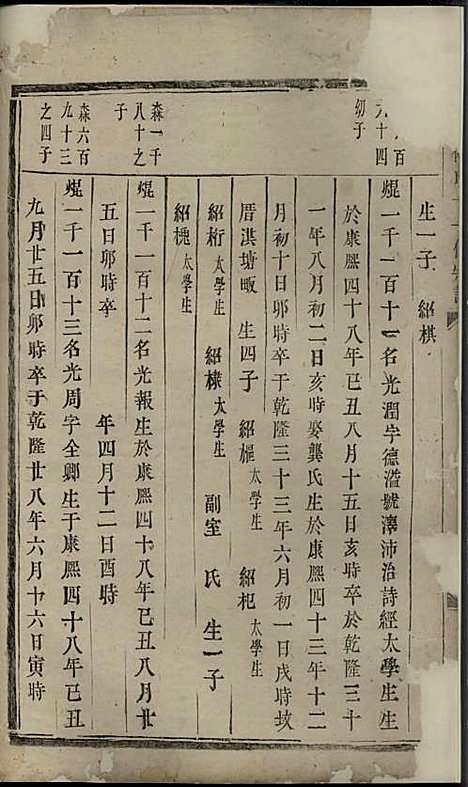 生一子 紹棋
百
十四
幼子
焜一千一百十一名光潤字德滋號澤沛治詩經太學生生
於康熙四十八年己丑八月十五日亥時卒於乾隆三十
一年八月初二日亥時娶龔氏生於康熙四十三年十二
月初十日卯時卒于乾隆三十三年六月初一日戌時坟
厝淇塘畈 生四子 紹櫂太學生 紹杞太學生
紹桁太學生 紹棣太學生 副室 氏 生一子
紹槐太學生
森一千
八十之
子
焜一千一百十二名光報生於康熙四十八年己丑八月廿
五日卯時卒 年四月十二日酉時
森六百
九十三
之四子
焜一千一百十三名光周字全卿生于康熙四十八年己丑
九月廿五日卯時卒于乾隆廿八年六月十六日寅時